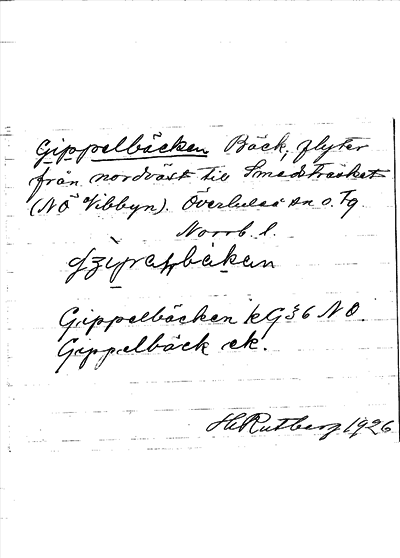 Gippelbäcken Bäck, flyter
från nordväst till Smedsträsket
(NÖ Vibbyn). Överluleå sn o. Tg
Norrb. l.
Gippelbäcken kG 36 NO.
Gippelbäck ek.
H Rutberg 1926